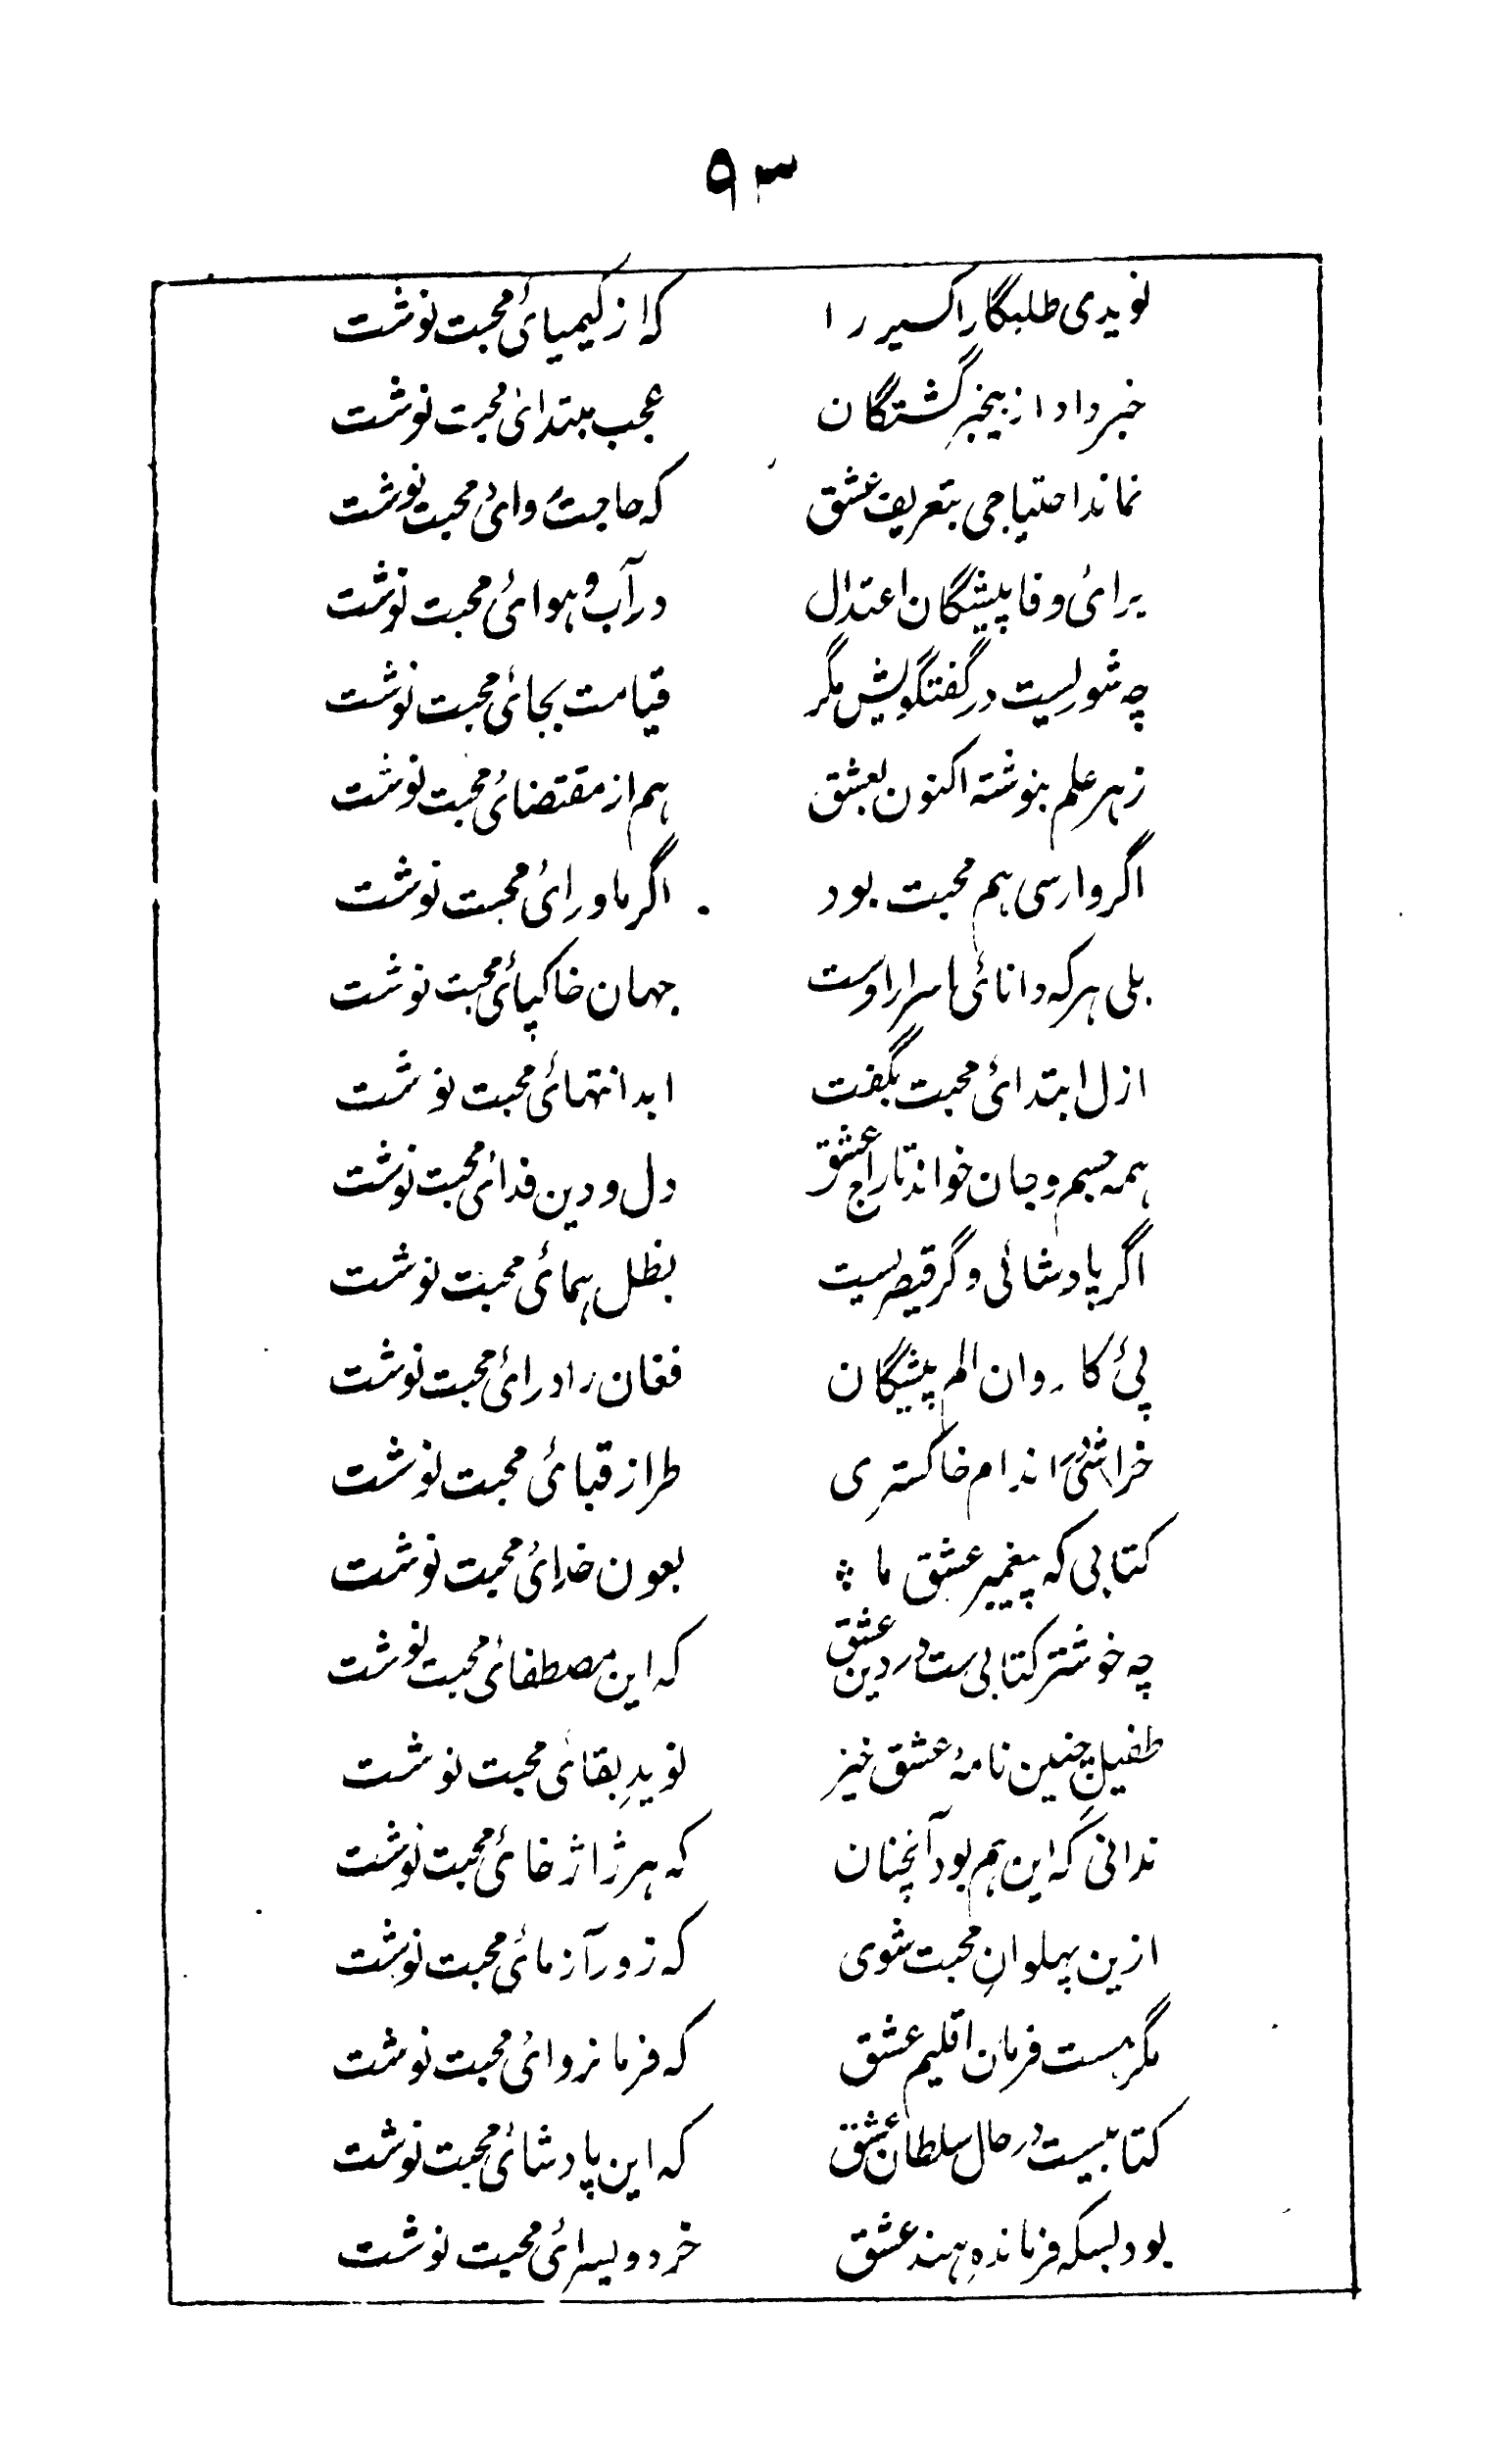 ۹۳
نویدی طلبگار اکسیر را که از کیمیائ محبت نوشت
خبر داد از بیخبر گشتگان عجب مبتدائ محبت نوشت
نماند احتیاجی بتعریف عشق که حاجت روائ محبت نوشت
برائ وفا پیشگان اعتدال در آب و ہوائ محبت نوشت
چه شوریست در گفتگویش مگر قیامت بجائ محبت نوشت
ز ہر علم بنوشته اکنون بعشق ہم از مقتضائ محبت نوشت
اگر وارسی ہم محبت بود اگر ماورائ محبت نوشت
بلی ہر که دانائ اسرار اوست جہان خاکپائ محبت نوشت
ازل ابتدائ محبت بگفت ابد انتہائ محبت نوشت
ہمه جسم و جان خواند تاراج عشق دل و دین فدائ محبت نوشت
اگر پادشائی و گر قیصریست بظل ہمائ محبت نوشت
پئ کاروان الم پیشگان فغان را درائ محبت نوشت
خراش اندام خاکستری طراز قبائ محبت نوشت
کتابی که پیغمبر عشق ما بعون خدائ محبت نوشت
چه خوشتر کتابی ست در دین عشق که این مصطفائ محبت نوشت
طفیلِ چنین نامهٔ عشق خیز نویدِ بقائ محبت نوشت
ندانی که این ہم بود آنچنان که ہر ژاژ خائ محبت نوشت
ازین پہلوانِ محبت شوی که زور آزمائ محبت نوشت
مگر ہست فرمان اقلیم عشق که فرمانروائ محبت نوشت
کتابیست در حال سلطان عشق که این پادشائ محبت نوشت
بود بسکه فرماندهِ ہند عشق خرد ویسرائ محبت نوشت